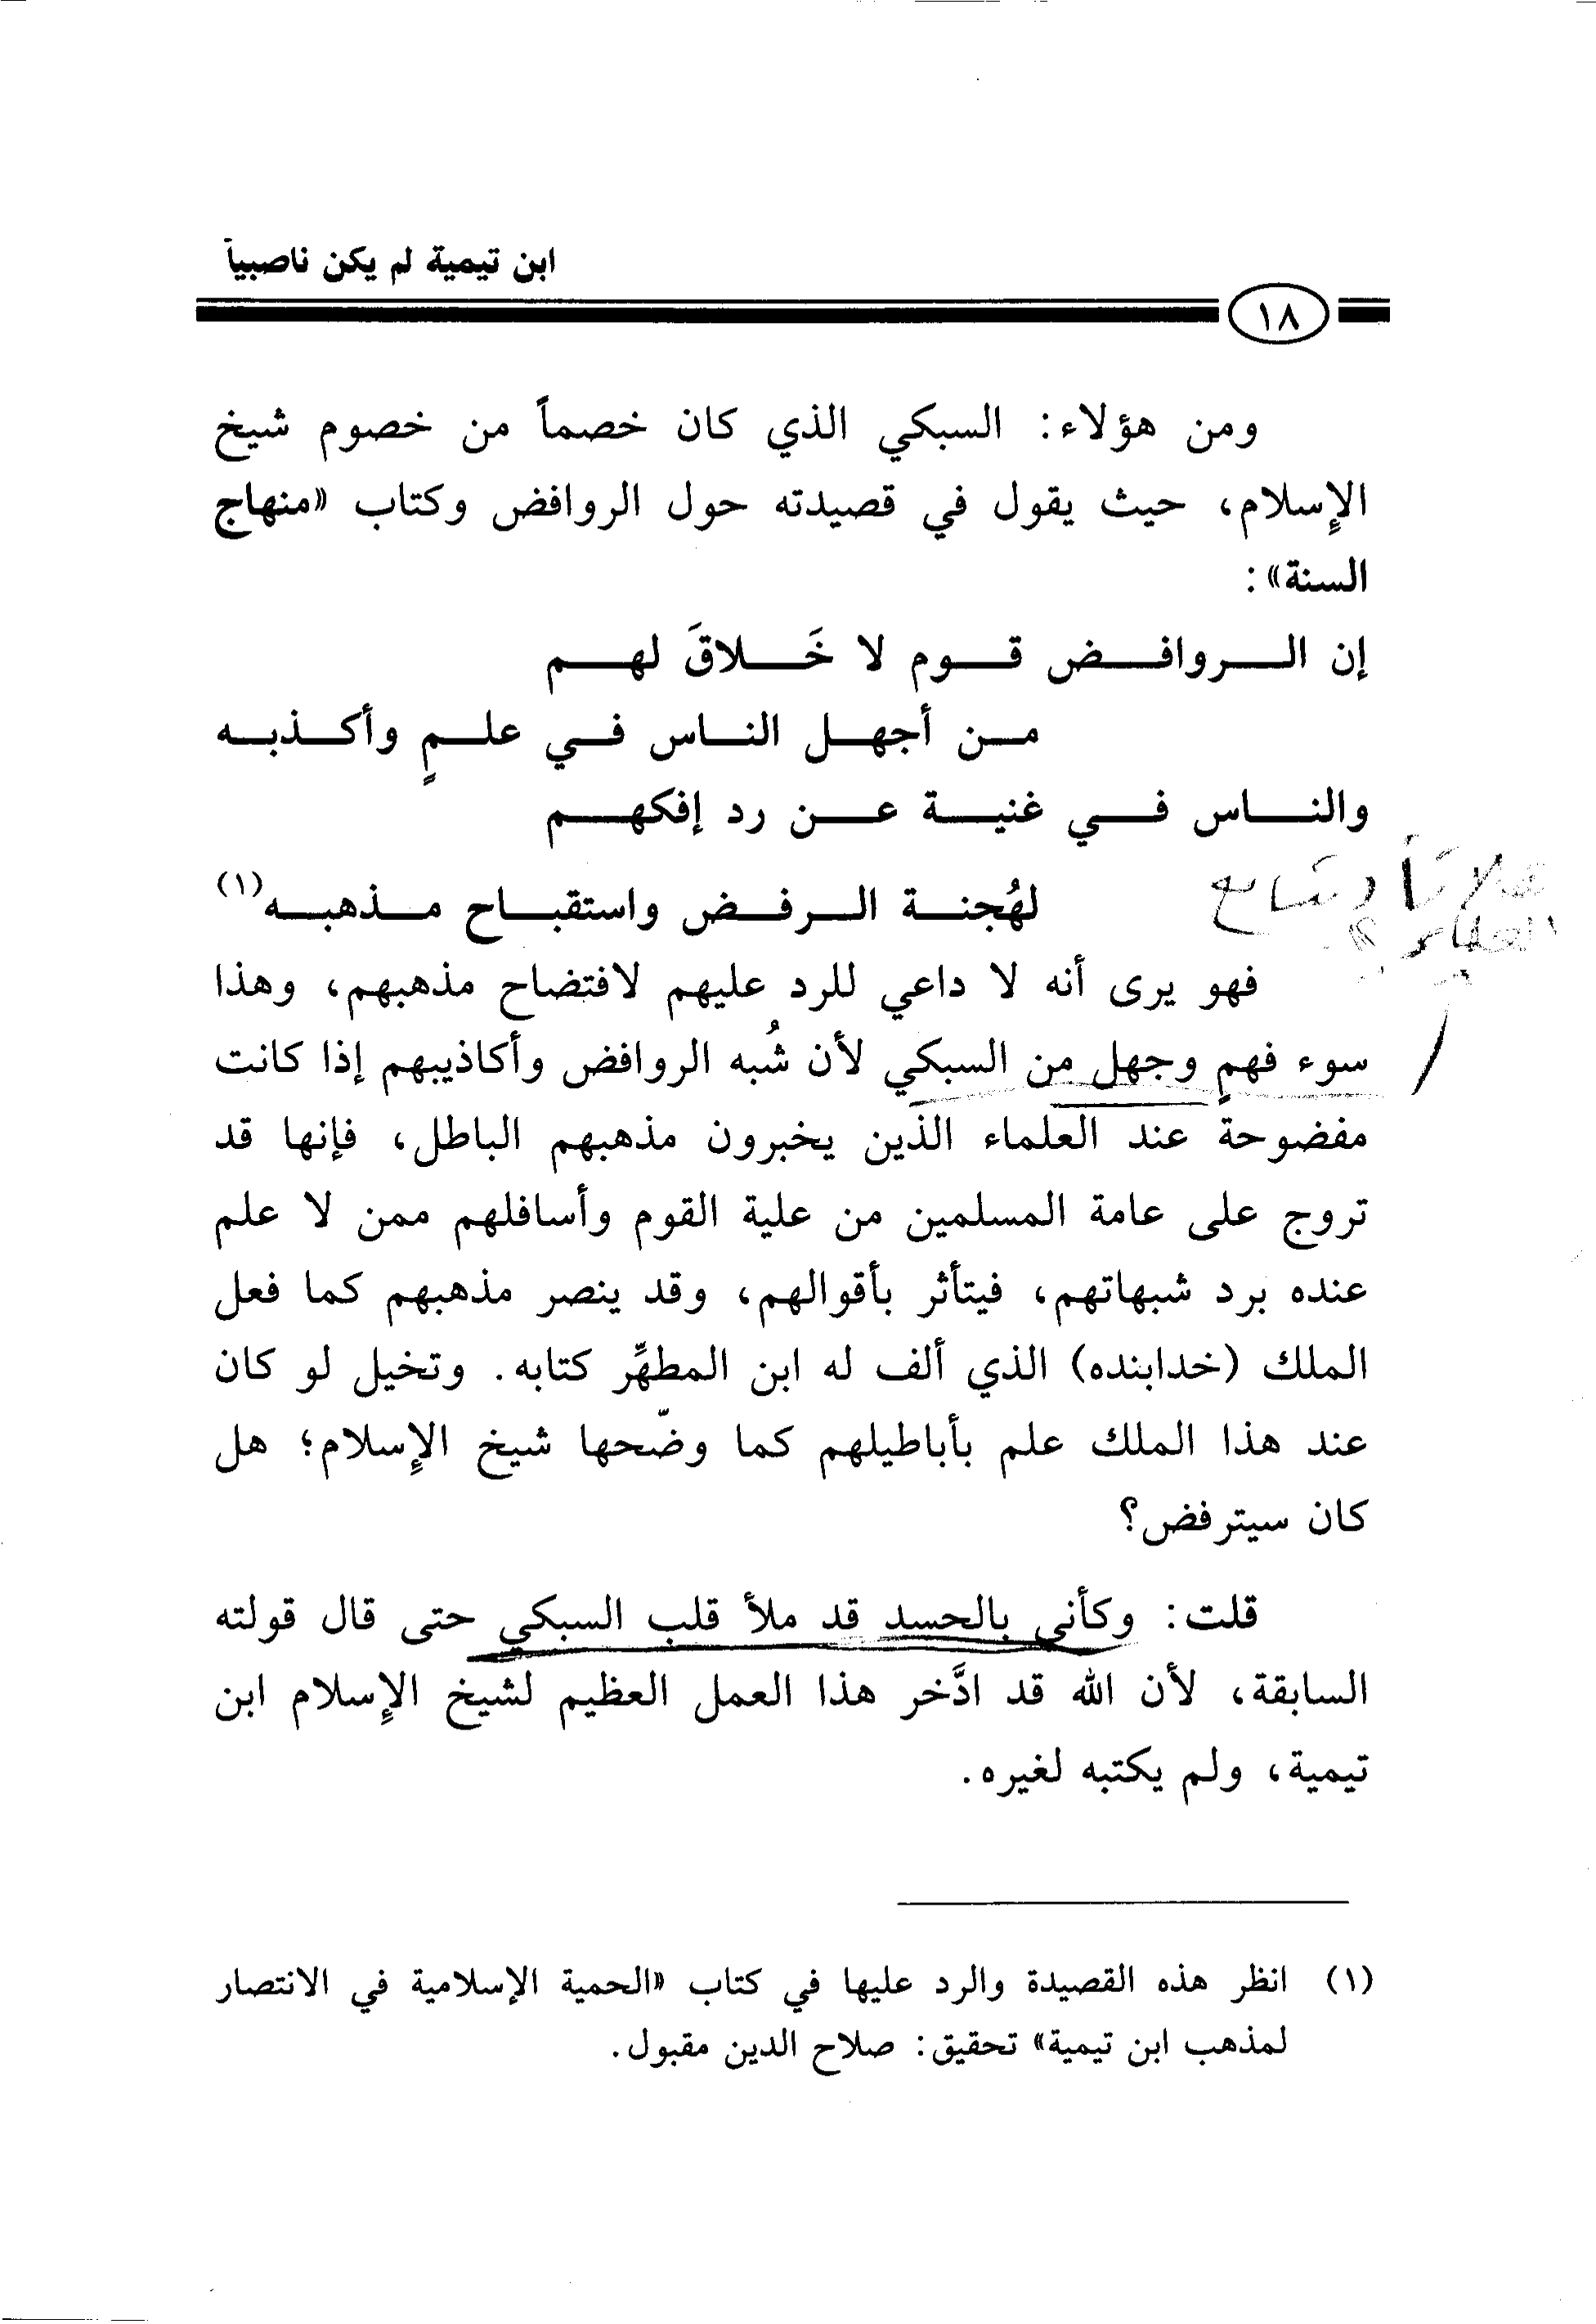 ابن تيمية لم يكن ناصبياً
١٨
ومن هؤلاء: السبكي الذي كان خصماً من خصوم شيخ
الإسلام، حيث يقول في قصيدته حول الروافض وكتاب «منهاج
السنة»:
إن الروافض قوم لا خَلاقَ لهم
من أجهل الناس في علمٍ وأكذبه
والناس في غنية عن رد إفكهم
لهُجنة الرفض واستقباح مذهبه(١)
فهو يرى أنه لا داعي للرد عليهم لافتضاح مذهبهم، وهذا
سوء فهمٍ وجهل من السبكي لأن شُبه الروافض وأكاذيبهم إذا كانت
مفضوحة عند العلماء الذين يخبرون مذهبهم الباطل، فإنها قد
تروج على عامة المسلمين من علية القوم وأسافلهم ممن لا علم
عنده برد شبهاتهم، فيتأثر بأقوالهم، وقد ينصر مذهبهم كما فعل
الملك (خدابنده) الذي ألف له ابن المطهِّر كتابه. وتخيل لو كان
عند هذا الملك علم بأباطيلهم كما وضّحها شيخ الإسلام؛ هل
كان سيترفض؟
قلت: وكأني بالحسد قد ملأ قلب السبكي حتى قال قولته
السابقة، لأن الله قد ادَّخر هذا العمل العظيم لشيخ الإسلام ابن
تيمية، ولم يكتبه لغيره.
(١) انظر هذه القصيدة والرد عليها في كتاب «الحمية الإسلامية في الانتصار
لمذهب ابن تيمية» تحقيق: صلاح الدين مقبول.